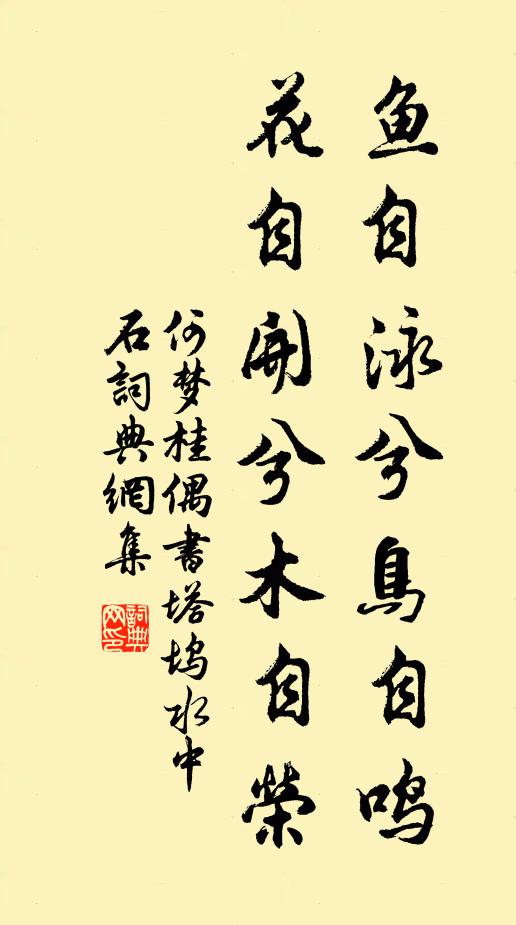 鱼自泳兮鳥自鸣
花自開兮木自榮
何梦桂偶書塔坞水中
石詞典網集
詞典
网印